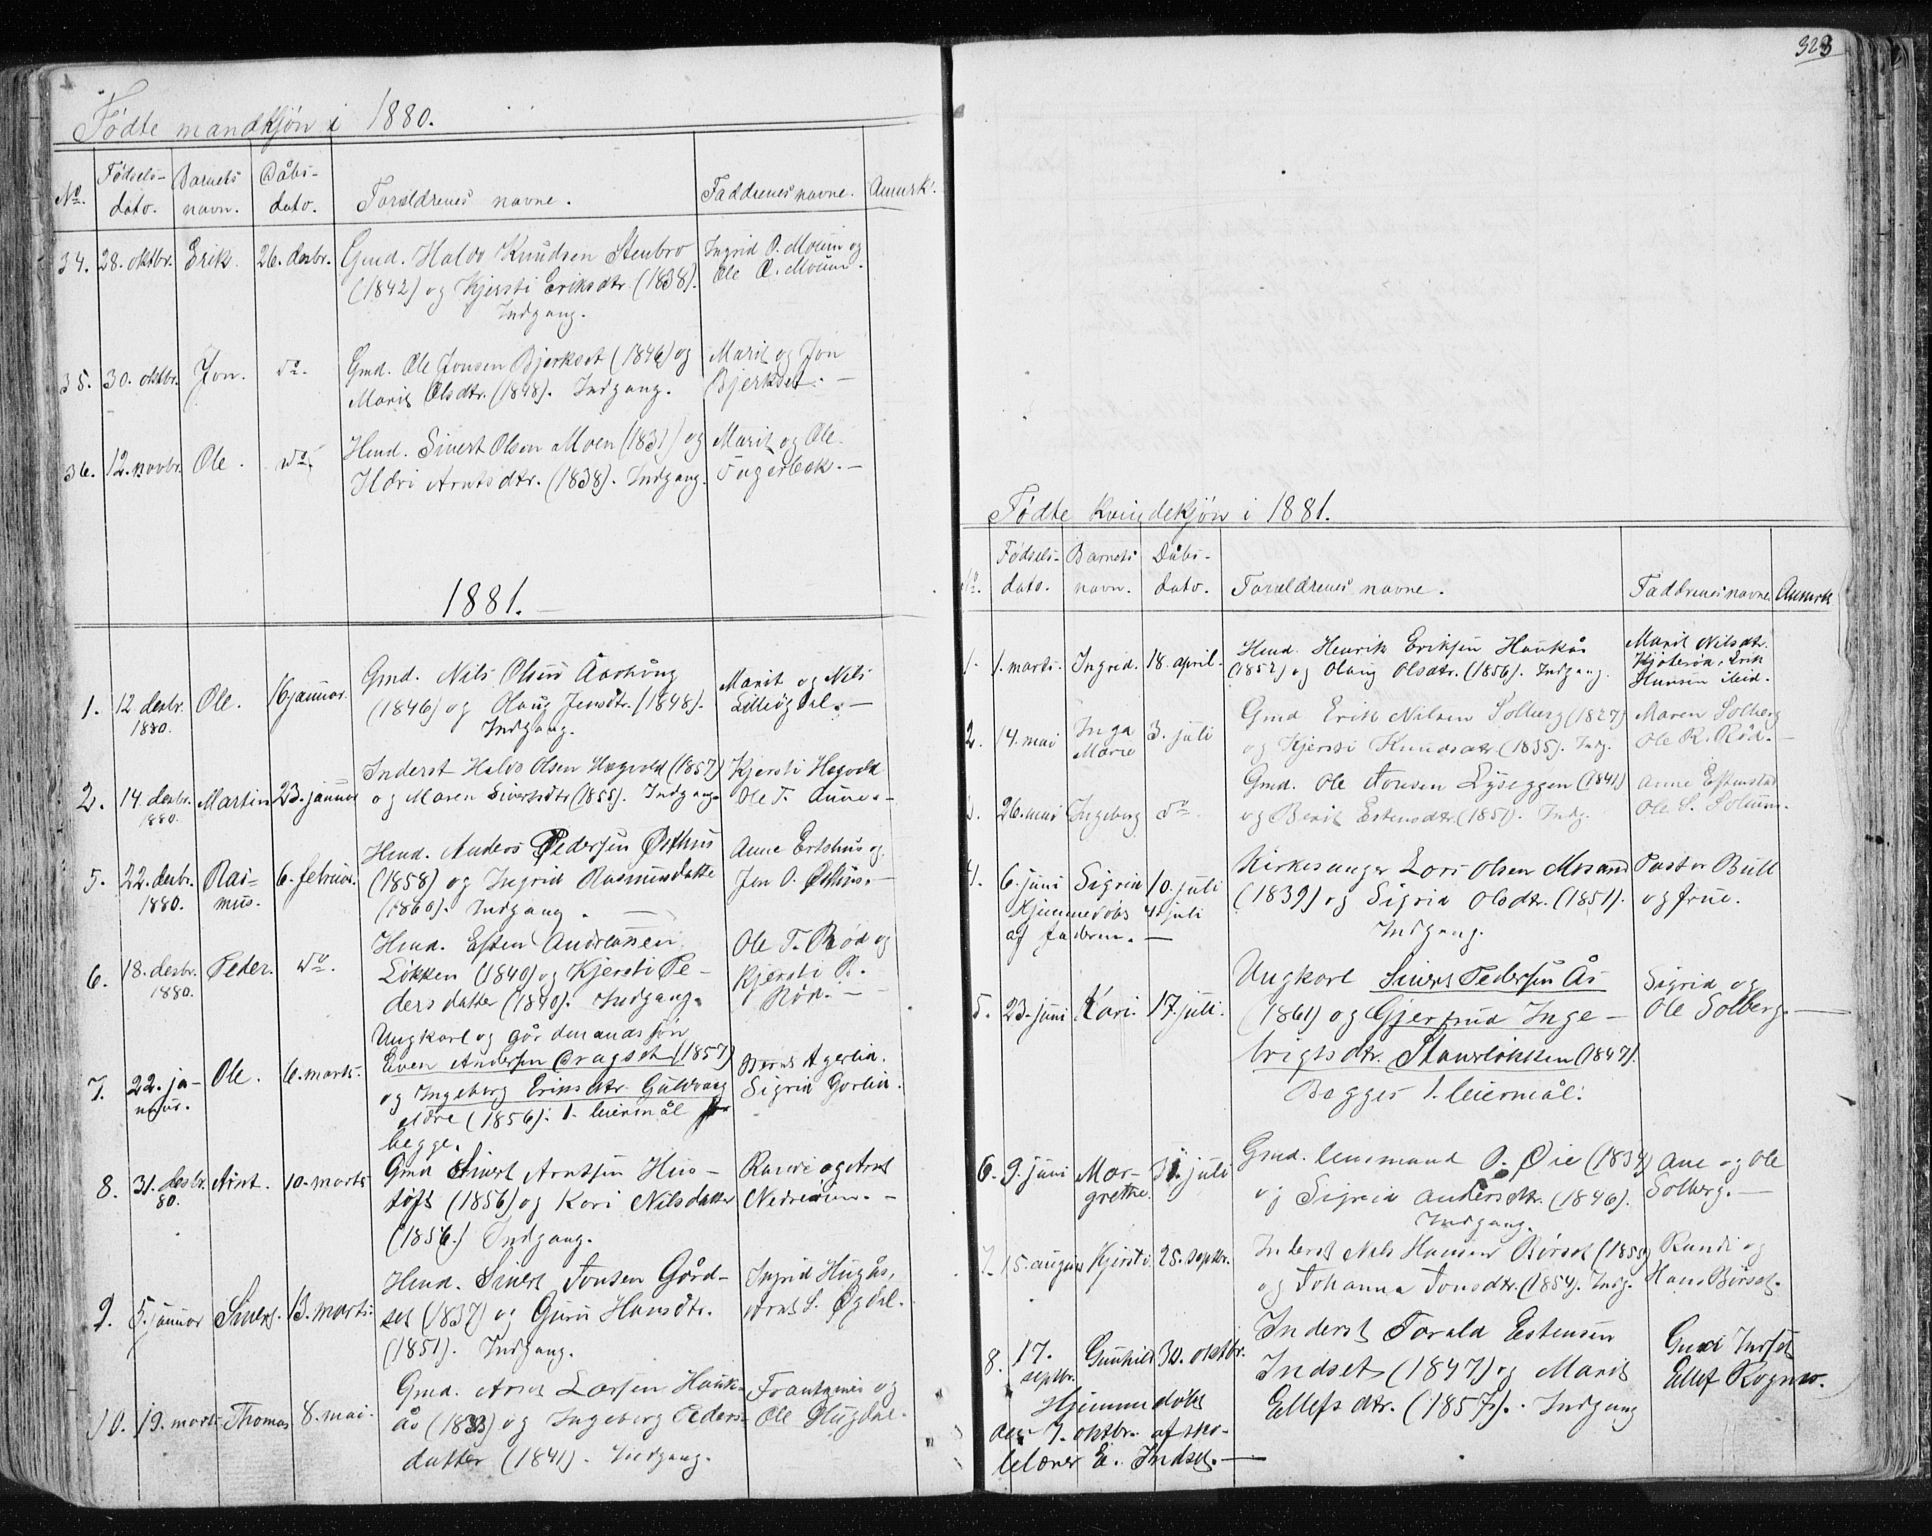 323
Fødte mandkjön i 1880.
No. Fødsels- dato. Barnets navn. Dåbs- dato. Forældrenes navne. Faddrenes navne. Anmerk.
34. 28. oktbr. Erik. 26. desbr. Gmd. Halvo Knudsen Stenbro Ingrid O. Moum og
(1842) og Kjersti Eriksdtr. (1838). Ole O. Moum.
Indgang.
35. 30. oktbr. Jon. do. Gmd. Ole Jonsen Bjerkset (1846) og Marit og Jon
Marit Olsdtr. (1848). Indgang. Bjerkset. —
36. 12. novbr. Ole. do. Hmd. Sivert Olsen Moen (1831) og Marit og Ole
Ildri Arntsdtr. (1838). Indgang. Fagerbek. —
1881. —
1. 12 desbr. 1880. Ole. 16 januar. Gmd. Nils Olsen Aarhaug Marit og Nils
(1846) og Olaug Jensdtr. (1848). Lilleögdal. —
Indgang.
2. 14. desbr. 1880. Martin 23. januar Inderst Halvo Olsen Hægvold (1857) Kjersti Hægvold
og Maren Sivertsdtr (1855). Indgang. Ole T. Aune. —
5. 22. desbr. 1880. Ras- mus. 6. februar. Hmd. Anders Pedersen Østhus Anne Ertshus og
(1858) og Ingrid Rasmusdatte Jon O. Østhus. —
(1860). Indgang. —
6. 18. desbr. 1880. Peder. do. Hmd. Esten Andreassen Ole T. Rød og
Løkken (1840) og Kjersti Pe- Kjersti R.
dersdatter (1840). Indgang. Rød. —
7. 22. ja- nuar. Ole. 6. marts. Ungkarl og gårdmandssøn
Even Andersen Cragset (1857) Bernt Agerlia.
og Ingeborg Eriksdtr. Guldvaag Sigrid Gorlia.
eldre (1856). 1. leiermål for
begge.
8. 31. desbr. 80. Arnt. 10. marts Gmd Sivert Arntsen Hus- Randi og Arnt
toft (1856) og Kari Nilsdatter Nedreeium. —
(1856.) Indgang.
9. 5. januar Sivert. 13. marts. Hmd. Sivert Jonsen Gård- Ingrid Hugås,
set (1837) og Guru Hansdtr. Arnt S. Øgdal.
(1851). Indgang.
10. 19. marts Thomas 8. mai. Gmd. Arnt Larsen Hauk- Frantzenes og
ås (1833) og Ingeborg Peders- Ole Hugdal.
datter (1841). Indgang.
Fødte kvindekjön i 1881.
No. Fødsels- dato. Barnets navn. Dåbs- dato. Forældrenes navne. Faddrenes navne. Anmerk
1. 1. marts. Ingrid. 18. april. Hmd. Henrik Eriksen Haukås Marit Nilsdtr.
(1852) og Olaug Olsdtr. (1856). Indgang. Kjøterøa, Erik
Hansen ibid.
2. 14. mai Inga Marie 3. juli Gmd Erik Nilsen Solberg (1827) Maren Solberg
og Kjersti Knudsdtr (1835). Indg. Ole R. Rød. —
3. 26. mai Ingeborg do Gmd. Ole Jonsen Lyseggen (1841) Anne Estenstad
og Berit Estensdtr. (1851). Indg. Ole S. Solum.
4. 6. juni Sigrid 10. juli Kirkesanger Lars Olsen Mosand Pastor Bull
Hjemmedøbt 4. juli (1839) og Sigrid Olsdtr. (1851). og frue.
af faderen. — Indgang.
5. 23. juni Kari. 17. juli. Ungkarl Sivert Pedersen Ås Sigrid og
(1861) og Gjertrud Inge- Ole Solberg. —
brigtsdtr. Staurløkken (1847).
Begges 1. leiermål.
6. 9. juni Mar- grethe. 31. juli Gmd. lensmand O. Øie (1834) Ane og Ole
og Sigrid Andersdtr. (1846). Solberg. —
Indgang.
7. 15. august Kjersti 25. septbr. Inderst Nils Hansen Børset (1855) Randi og
og Johanna Jonsdtr. (1854). Indg. Hans Børset.
8. 17. septbr. Gunhild 30. oktbr. Inderst Torald Estensen Guri Indset
Indset (1847) og Marit Ellef Rognes.
Hjemmedøbt Ellefsdtr. (1857). Indgang
den 7. oktbr. af sko-
lelærer E. Indset. —